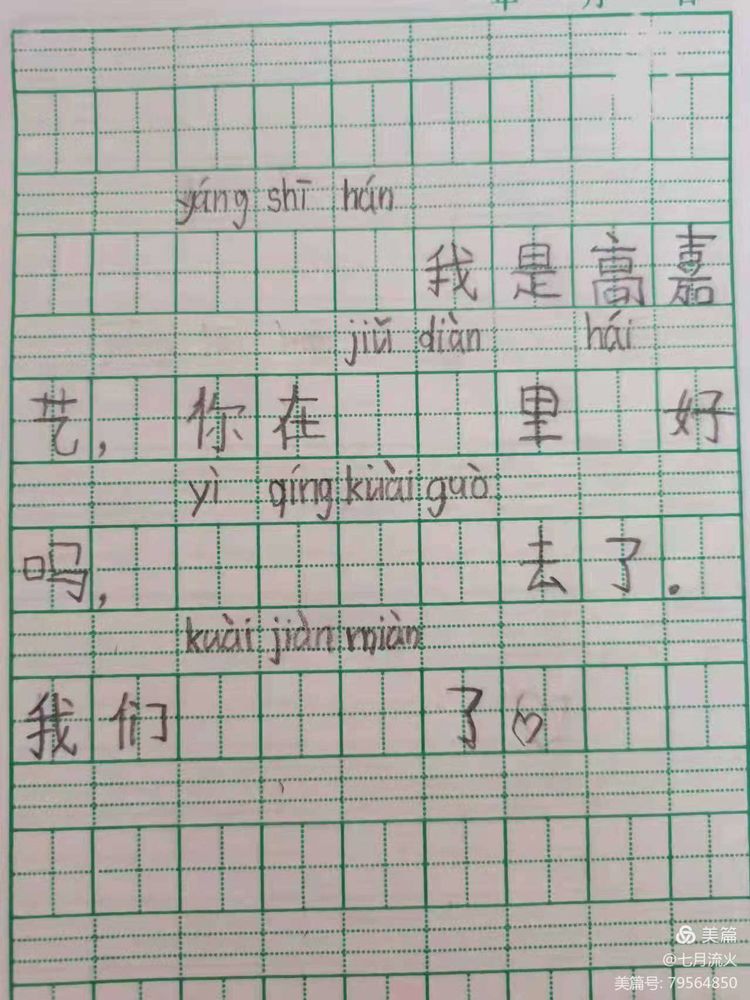 yáng shī hán
我是高嘉
jiǔ diàn hái
艺，你在 里 好
yì qíng kuài guò
吗， 去了.
kuài jiàn miàn
我们 了
美篇
@七月流火
美篇号: 79564850